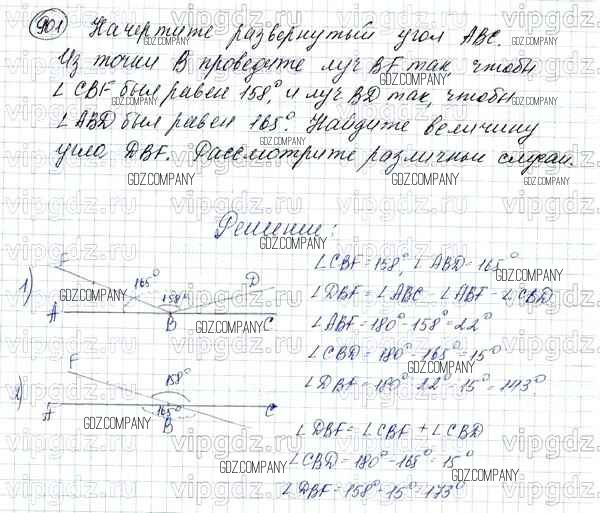 901 Начертите развернутый угол ABC.
Из точки B проведите луч BF так, чтобы
∠CBF был равен 158°, и луч BD так, чтобы
∠ABD был равен 165°. Найдите величину
угла DBF. Рассмотрите различные случаи.
Решение:
1)
F
165°
158°
D
A
B
C
∠CBF=158°, ∠ABD=165°
∠DBF=∠ABC-∠ABF-∠CBD
∠ABF=180°-158°=22°
∠CBD=180°-165°=15°
∠DBF=180°-22°-15°=143°
2)
F
158°
A
165°
B
C
∠DBF=∠CBF+∠CBD
∠CBD=180°-165°=15°
∠DBF=158°+15°=173°
GDZ.COMPANY
vipgdz.ru